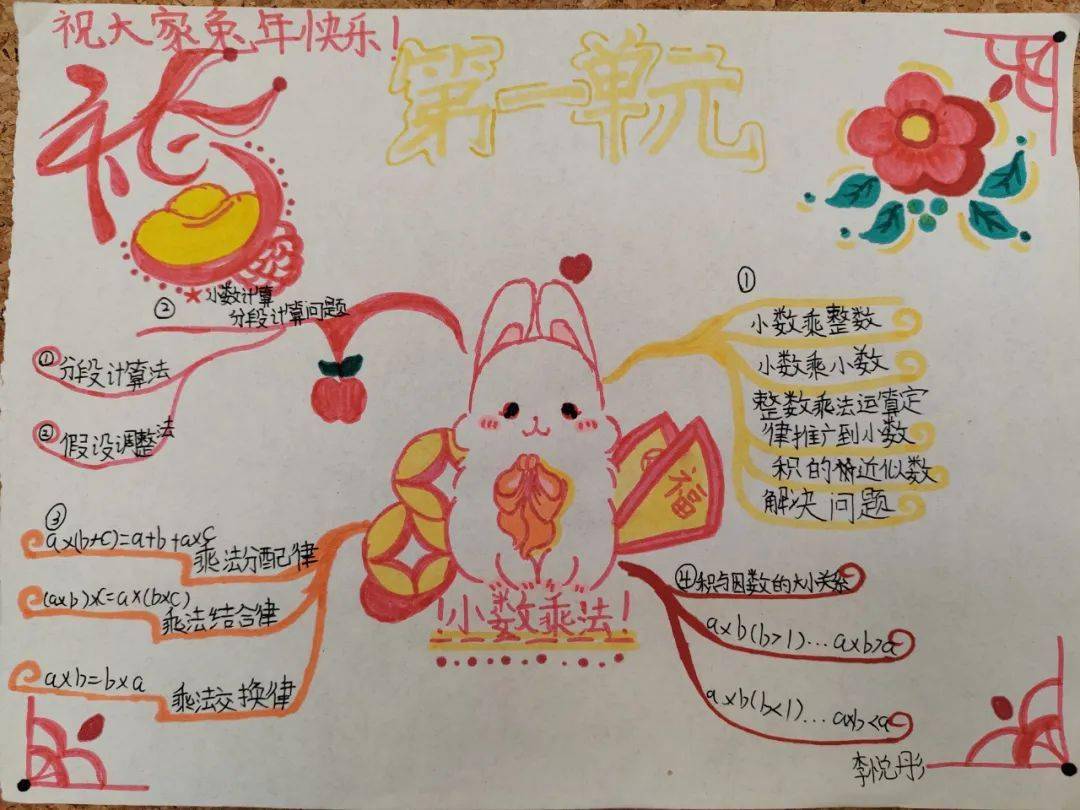 祝大家兔年快乐!
福
第一单元
②
★小数计算
分段计算问题
①分段计算法
②假设调整法
③
a×(b+c)=a+b+a×c
乘法分配律
(a×b)×c=a×(b×c)
乘法结合律
a×b=b×a
乘法交换律
福
!小数乘法!
①
小数乘整数
小数乘小数
整数乘法运算定
律推广到小数
积的近似数
解决问题
④积与因数的大小关系
a×b(b>1)...a×b>a
a×b(b<1)...a×b<a
李悦彤